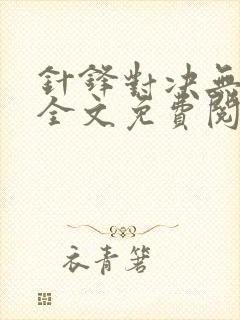 針鋒對決無
全文免費閱
衣青箬